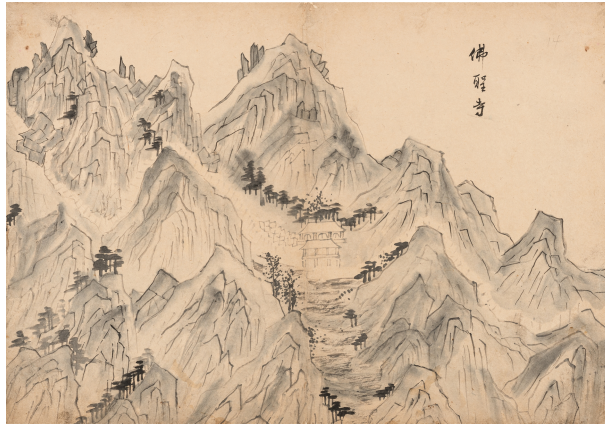 佛聖寺